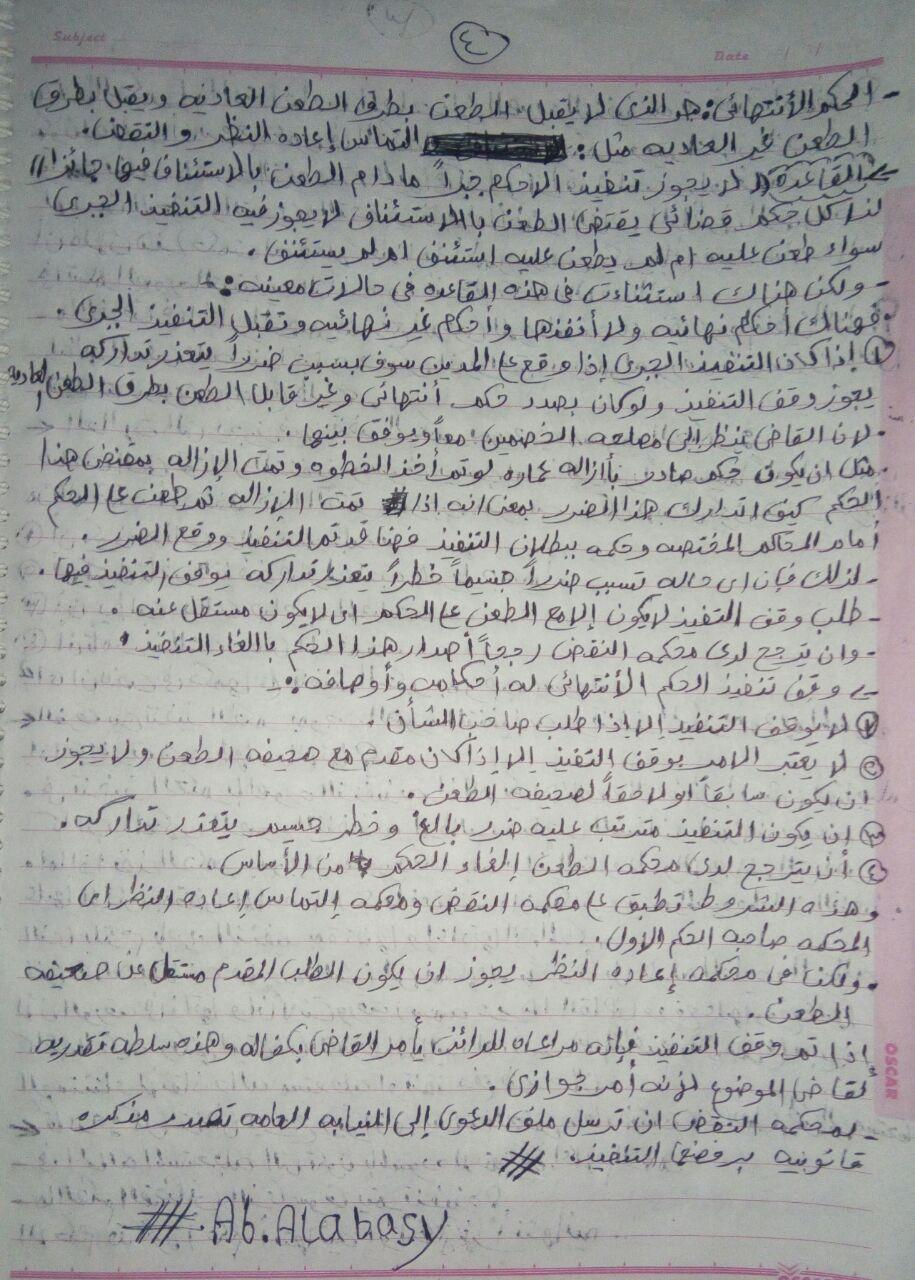 ٤
Subject
Date / /
- الحكم الأنتهائي: هو الذي لا يقبل الطعن بطرق الطعن العاديه ويقبل بطرق
الطعن غير العاديه مثل: التماس إعاده النظر والنقض.
القاعدة (( لا يجوز تنفيذ الاحكام جبراً ما دام الطعن بالاستئناف فيها جائزا ))
لذا كل حكم قضائي يقتضي الطعن بالاستئناف لا يجوز فيه التنفيذ الجبري
سواء طعن عليه ام لم يطعن عليه استئنف ام لم يستئنف.
- ولكن هناك استثناءت في هذه القاعده في حالات معينه:
فهناك أحكام نهائيه ولا أنفذها وأحكام غير نهائيه وتقبل التنفيذ الجبري.
① إذا كان التنفيذ الجبري إذا وقع على المدين سوف يسبب ضرراً يتعذر تداركه
يجوز وقف التنفيذ ولو كان بصدد حكم أنتهائي وغير قابل الطعن بطرق الطعن العاديه
. لان القاضي ينظر إلى مصلحه الخصمين معاً ويوفق بينها.
. مثل ان يكون حكم صادر بأزاله عماره لو تم أخذ الخطوه وتمت الإزاله بمقتضى هذا
الحكم كيف اتدارك هذا الضرر بمعنى انه اذا تمت الازاله ثم طعن على الحكم
أمام المحاكم المختصه وحكمه ببطلان التنفيذ فهنا قد تم التنفيذ ووقع الضرر.
- لذلك فإن اي حاله تسبب ضرراً جسيماً خطراً يتعذر تداركه يوافق التنفيذ فيها.
- طلب وقف التنفيذ لا يكون إلا مع الطعن على الحكم اي لا يكون مستقل عنه.
- وان يترجح لدى محكمه النقض أصدار هذا الحكم باالغاء التنفيذ.
وقف تنفيذ الحكم الأنتهائي له أحكامه وأوصافه:-
① لا يوقف التنفيذ إلا إذا طلب صاحب الشأن.
② لا يعتبر الامر بوقف التنفيذ إلا إذا كان مقدم مع صحيفه الطعن ولا يجوز
ان يكون سابقاً او لاحقاً لصحيفه الطعن.
③ ان يكون التنفيذ مترتب عليه ضرر بالغ وخطر جسيم يتعذر تداركه.
④ أن يترجح لدى محكمه الطعن إلغاء الحكم من الأساس.
وهذه الشروط تطبق على محكمه النقض ومحكمه إلتماس إعاده النظر اي
المحكمه صاحبه الحكم الاول.
. ولكن في محكمه إعاده النظر يجوز ان يكون الطلب المقدم مستقل عن صحيفه
الطعن.
إذا تم وقف التنفيذ فإنه مراعاه للدائن يأمر القاضي بكفاله وهذه سلطه تقديريه
لقاضي الموضوع لأنه أمر جوازي.
- لمحكمه النقض ان ترسل ملف الدعوى إلى النيابه العامه تصدر مذكره
قانونيه برفضها التنفيذ. #
#. Ab.Alabasy
OSCAR